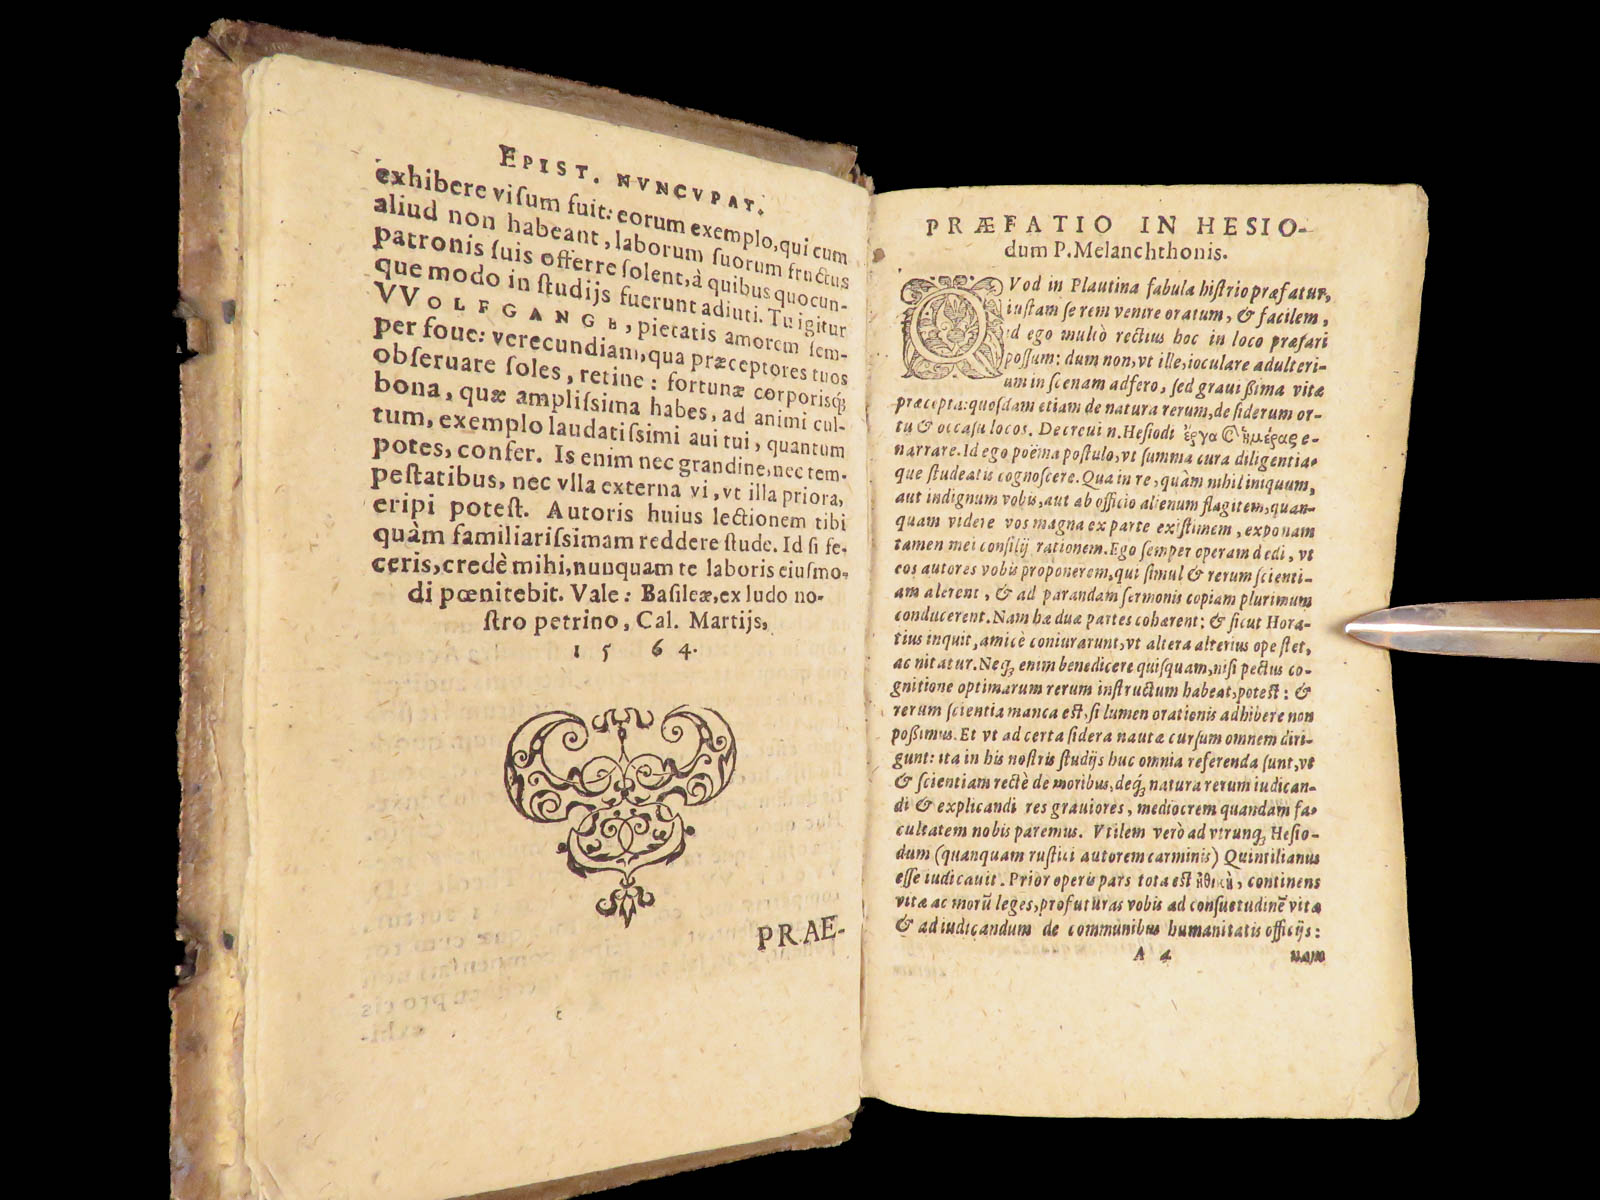 EPIST. NVNCVPAT.
exhibere viſum fuit: eorum exemplo, qui cum
aliud non habeant, laborum ſuorum fructus
patronis ſuis offerre ſolent, à quibus quocun-
que modo in ſtudijs fuerunt adiuti. Tu igitur
VVOLFGANGE, pietatis amorem ſem-
per foue: verecundiam, qua præceptores tuos
obſeruare ſoles, retine: fortunæ corporisq́;
bona, quæ ampliſsima habes, ad animi cul-
tum, exemplo laudatiſsimi aui tui, quantum
potes, confer. Is enim nec grandine, nec tem-
peſtatibus, nec vlla externa vi, vt illa priora,
eripi poteſt. Autoris huius lectionem tibi
quàm familiariſsimam reddere ſtude. Id ſi fe-
ceris, credè mihi, nunquam te laboris eiuſmo-
di pœnitebit. Vale: Baſileæ, ex ludo no-
ſtro petrino, Cal. Martijs,
1 5 6 4.
PRAE-
PRÆFATIO IN HESIO-
dum P. Melanchthonis.
QVod in Plautina fabula hiſtrio præfatur,
iuſtam ſe rem venire oratum, & facilem,
id ego multò rectius hoc in loco præfari
poſſum: dum non, vt ille, ioculare adulteri-
um in ſcenam adfero, ſed grauißima vitæ
præcepta: quoſdam etiam de natura rerum, de ſiderum or-
tu & occaſu locos. Decreui n. Heſiodi ἔργα ϗ̀ ἡμέρας e-
narrare. Id ego poëma poſtulo, vt ſumma cura diligentia-
que ſtudeatis cognoſcere. Qua in re, quàm nihil iniquum,
aut indignum vobis, aut ab officio alienum flagitem, quan-
quam videre vos magna ex parte exiſtimem, exponam
tamen mei conſilij rationem. Ego ſemper operam dedi, vt
eos autores vobis proponerem, qui ſimul & rerum ſcienti-
am alerent, & ad parandam ſermonis copiam plurimum
conducerent. Nam hæ duæ partes cohærent: & ſicut Hora-
tius inquit, amicè coniurarunt, vt altera alterius ope ſtet,
ac nitatur. Neq́; enim benedicere quiſquam, niſi pectus co-
gnitione optimarum rerum inſtructum habeat, poteſt: &
rerum ſcientia manca eſt, ſi lumen orationis adhibere non
poßimus. Et vt ad certa ſidera nautæ curſum omnem diri-
gunt: ita in his noſtris ſtudijs huc omnia referenda ſunt, vt
& ſcientiam rectè de moribus, deq́; natura rerum iudican-
di & explicandi res grauiores, mediocrem quandam fa-
cultatem nobis paremus. Vtilem verò ad vtrunq́; Heſio-
dum (quanquam ruſtici autorem carminis) Quintilianus
eſſe iudicauit. Prior operis pars tota eſt ἠθικὴ, continens
vitæ ac morū leges, profuturas vobis ad conſuetudinē vitæ
& ad iudicandum de communibus humanitatis officijs:
A 4
nam